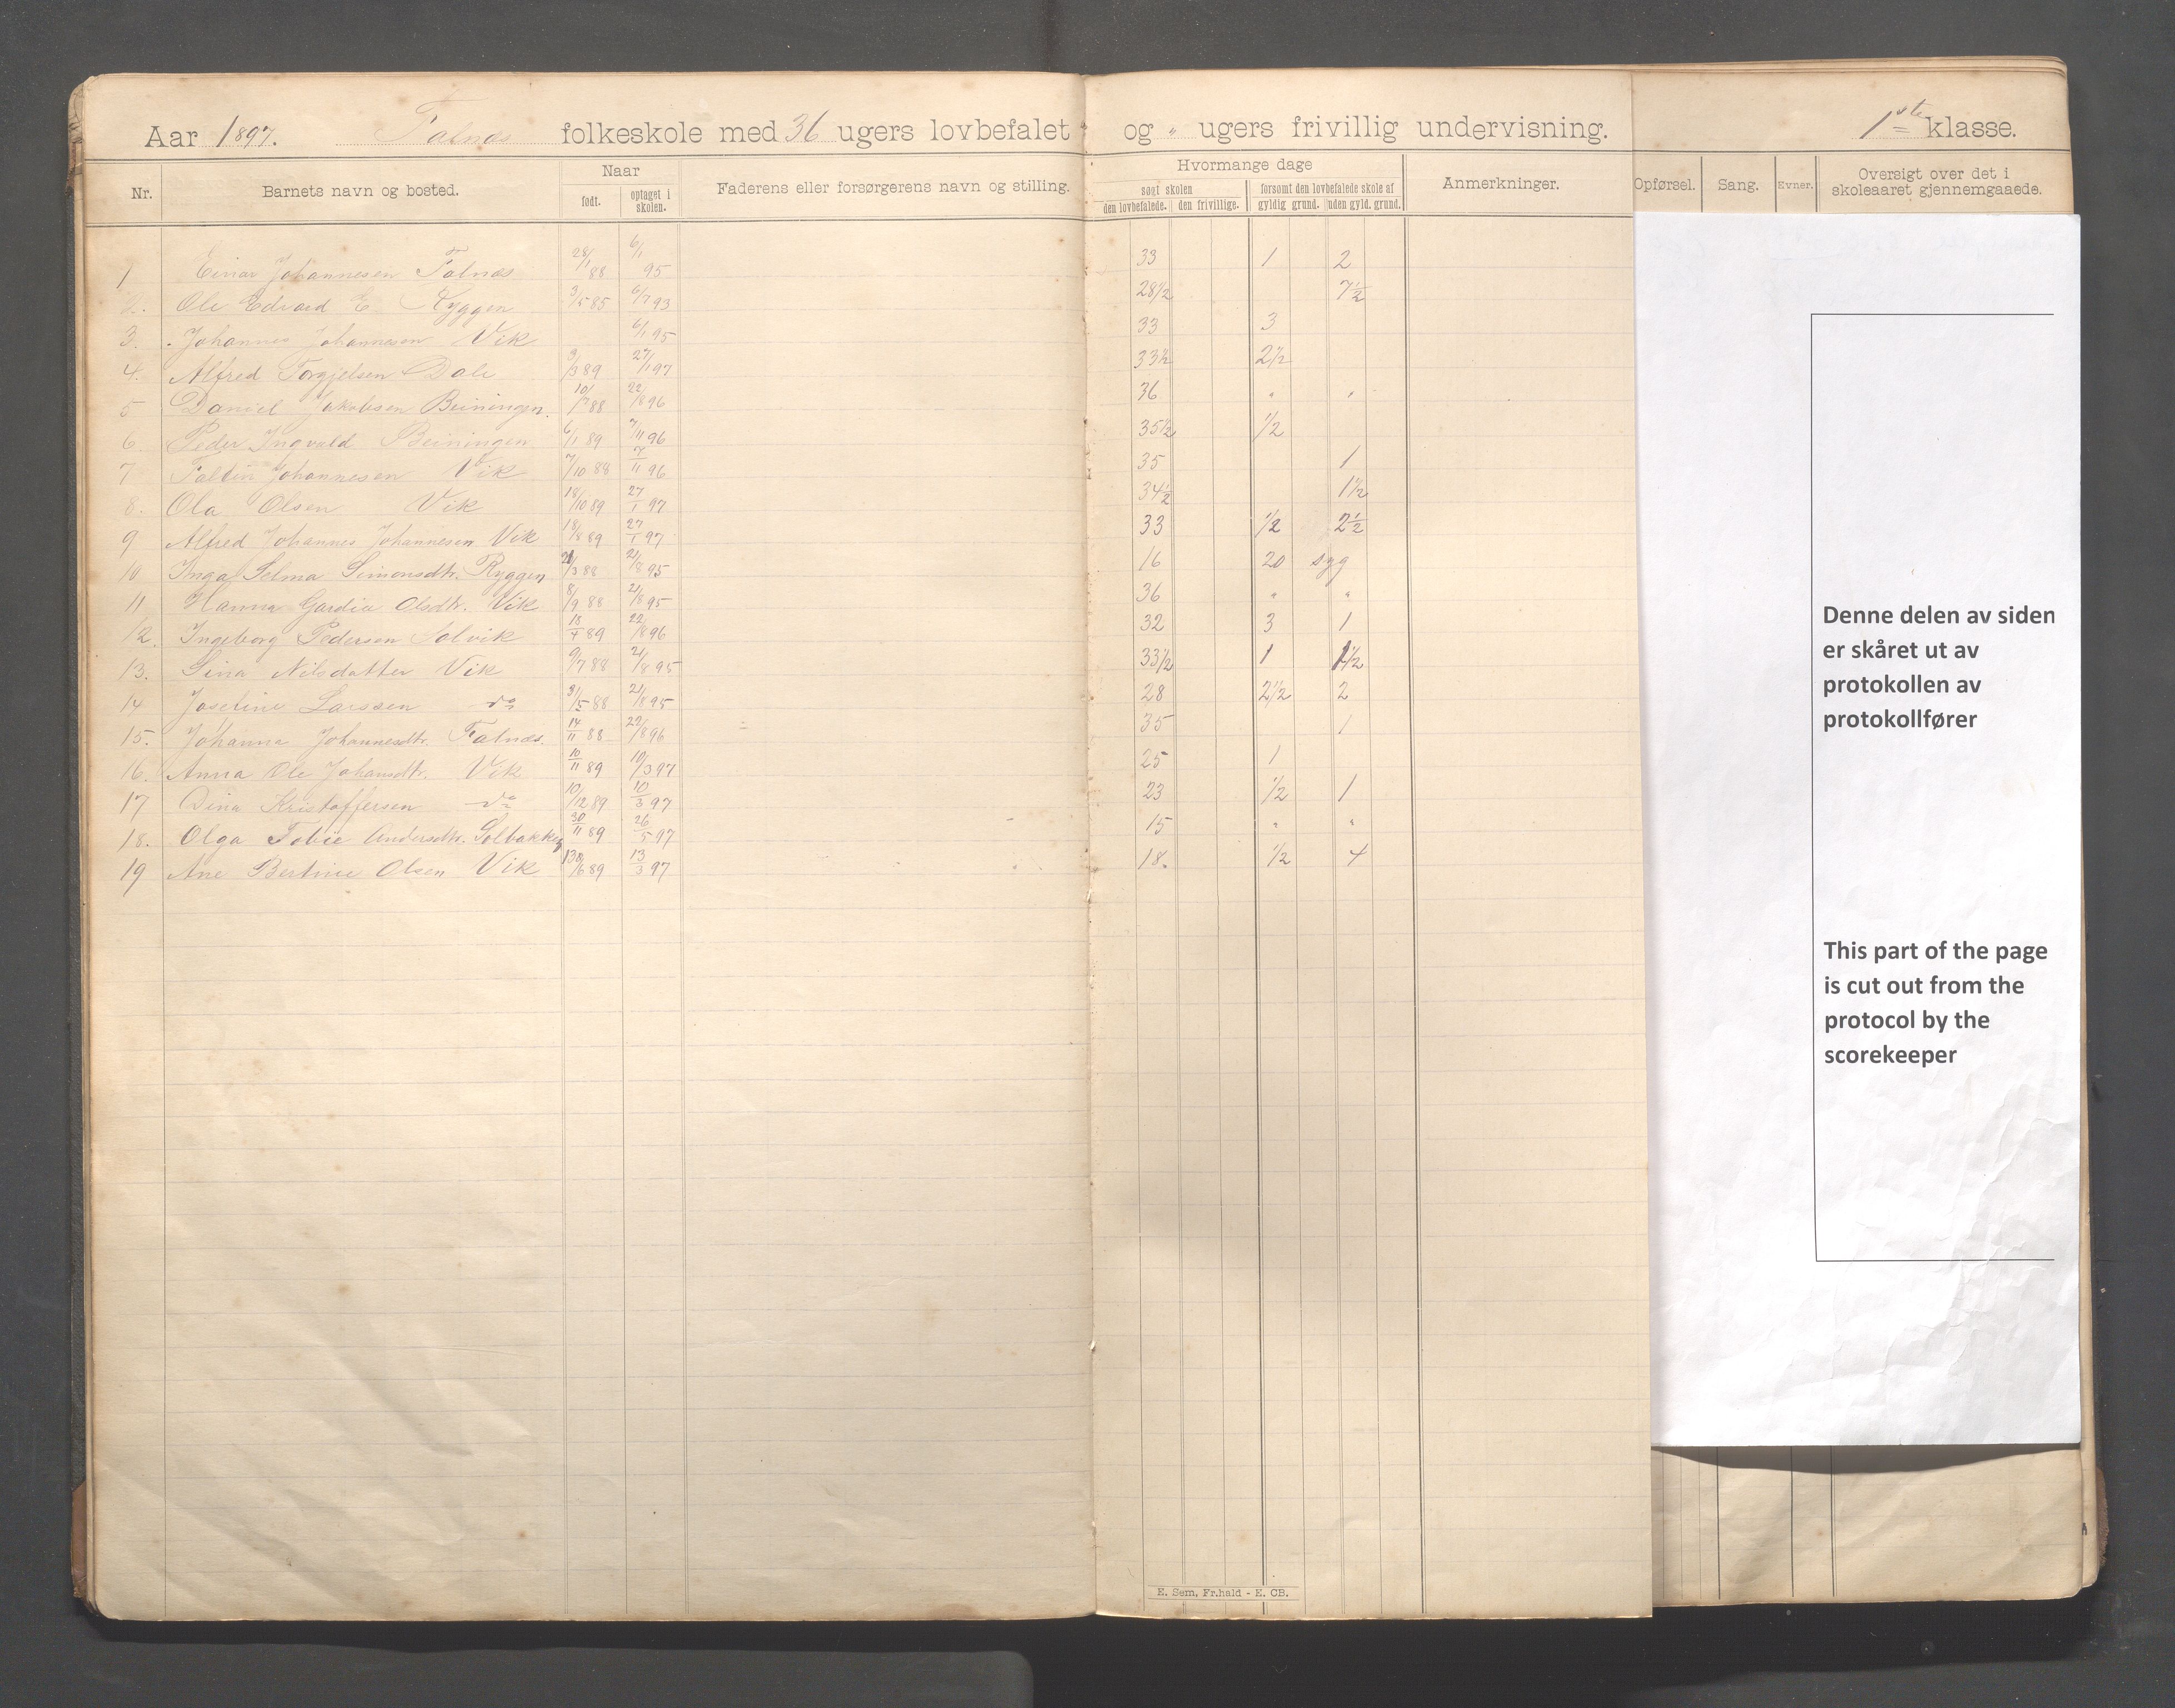 Aar 1897. Falnæs folkeskole med 36 ugers lovbefalet og " ugers frivillig undervisning. 1ste klasse.
Nr. Barnets navn og bosted. Naar født. optaget i skolen. Faderens eller forsørgerens navn og stilling. Hvormange dage søgt skolen den lovbefalede. den frivillige. forsømt den lovbefalede skole af gyldig grund. uden gyld. grund. Anmerkninger. Opførsel. Sang. Evner. Oversigt over det i skoleaaret gjennemgaaede.
1 Einar Johannesen Falnæs 28/1 88 6/1 95 33 1 2
2. Ole Edvard E. Ryggen 3/5 85 6/7 93 28 1/2 7 1/2
3. Johannes Johannesen Vik 6/1 95 33 3
4. Alfred Torgjelsen Dale 3/3 89 27/1 97 33 1/2 2 1/2
5 Daniel Jakobsen Beiningen. 10/7 88 22/8 96 36 " "
6 Peder Ingvald Beiningen 6/1 89 7/11 96 35 1/2 1/2
7 Johannesen Vik 7/10 88 7/11 96 35 1
8. Ola Olsen Vik 18/10 89 27/1 97 34 1/2 1 1/2
9 Alfred Johannes Johannesen Vik 18/8 89 27/1 97 33 1/2 2 1/2
10 Inga Selma Simonsdtr. Ryggen 21/3 88 21/8 95 16 20 syg
11 Hanna Gardia Olsdtr. Vik 8/9 88 21/8 95 36 " "
12. Ingeborg Pedersen Solvik 18/4 89 22/8 96 32 3 1
13. Sina Nilsdatter Vik 9/7 88 21/8 95 33 1/2 1 1 1/2
14 Josefine Larssen do 31/5 88 21/8 95 28 2 1/2 2
15. Johanna Johannesdtr. Falnæs. 14/11 88 22/8 96 35 1
16. Anna Ole Johansdtr. Vik 10/11 89 10/3 97 25 1
17 Dina Kristoffersen do 10/12 89 10/3 97 23 1/2 1
18. Olga Tobie Andersdtr. Solbakken 30/11 89 26/5 97 15 " "
19 Ane Bertine Olsen Vik 13/6 89 13/3 97 18. 1/2 4
Denne delen av siden
er skåret ut av
protokollen av
protokollfører
This part of the page
is cut out from the
protocol by the
scorekeeper
E. Sem, Fr.hald - E. CB.